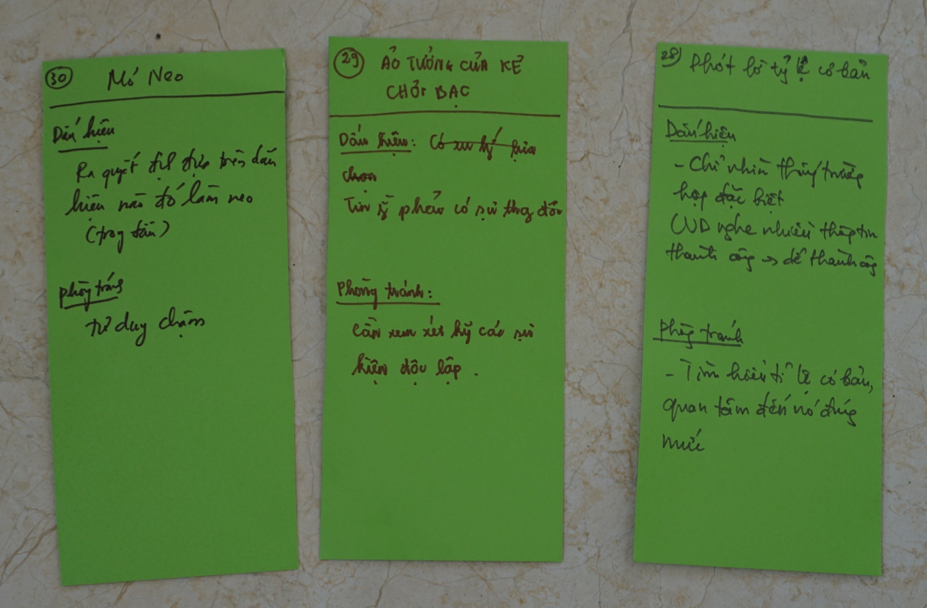 30
Mỏ Neo
Dấu hiệu
Ra quyết định dựa trên dấu
hiệu nào đó làm neo
(trong đầu)
phòng tránh
tư duy chậm
29
ẢO TƯỞNG CỦA KẺ
CHƠI BẠC
Dấu hiệu: Có xu
chọn
Tin sẽ phải có sự thay đổi
Phòng tránh:
Cần xem xét kỹ các sự
kiện độc lập.
28
Phớt lờ tỷ lệ cơ bản
Dấu hiệu
- Chỉ nhìn thấy trường
hợp đặc biệt
(VD nghe nhiều thông tin
thành công → dễ thành công
Phòng tránh
- Tìm hiểu tỉ lệ cơ bản,
quan tâm đến nó đúng
mức